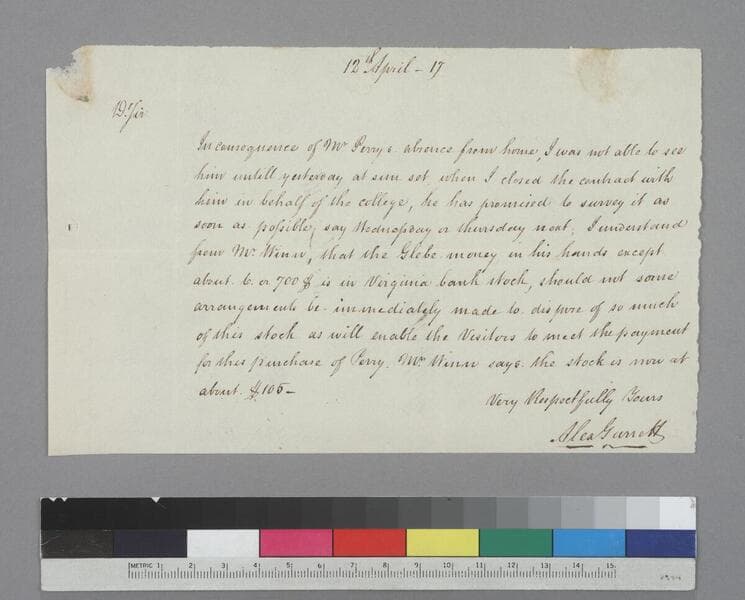 12th April - 17
Dr Sir
In consequence of Mr Perrys absence from home, I was not able to see
him untill yesterday at sun set when I closed the contract with
him in behalf of the college, he has promised to survey it as
soon as possible, say Wednessday or thursday next, I understand
from Mr Winn, that the Glebe money in his hands except
about 6 or 700 $ is in Virginia bank stock, should not some
arrangements be immediately made to dispose of so much
of this stock as will enable the Visitors to meet the payment
for this purchase of Perry. Mr Winn says the stock is now at
about $106-
Very Respectfully Yours
Alex Garrett
METRIC 1 2 3 4 5 6 7 8 9 10 11 12 13 14 15